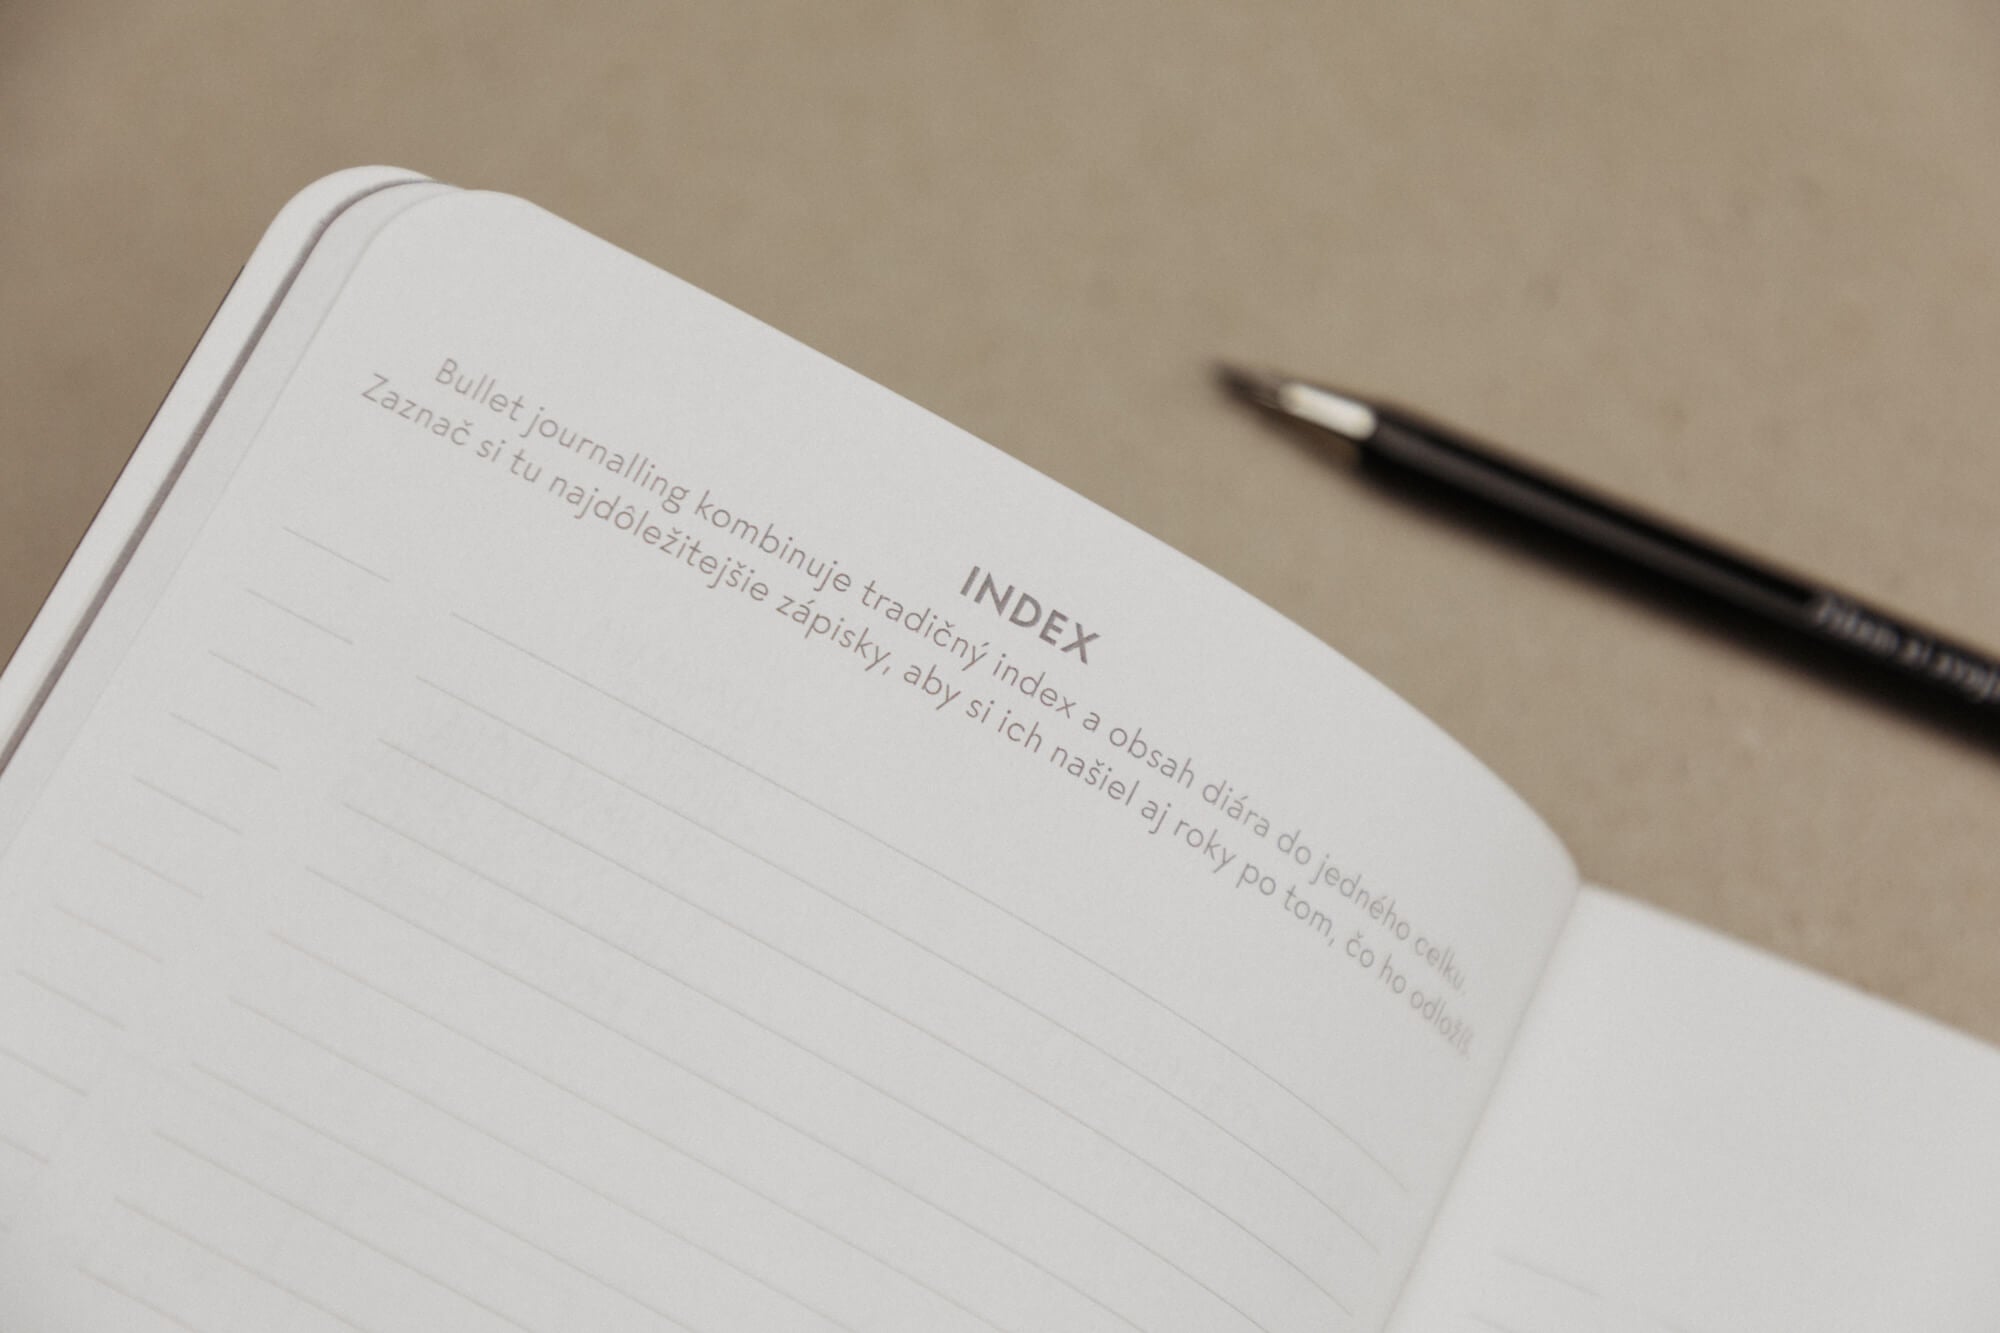 INDEX
Bullet journalling kombinuje tradičný index a obsah diára do jedného celku.
Zaznač si tu najdôležitejšie zápisky, aby si ich našiel aj roky po tom, čo ho odložíš.
si svoj